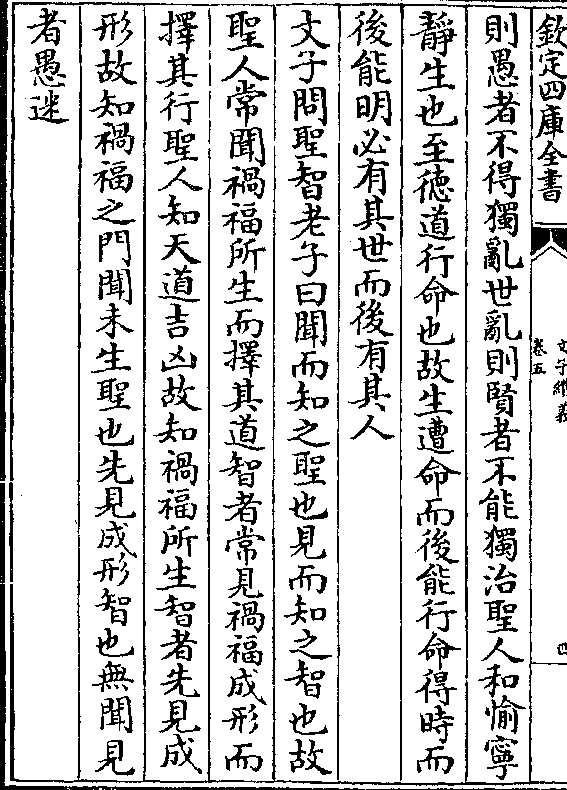 欽定四庫全書
文子纘義
卷五
四
則愚者不得獨亂世亂則賢者不能獨治聖人和愉寧
靜生也至德道行命也故生遭命而後能行命得時而
後能明必有其世而後有其人
文子問聖智老子曰聞而知之聖也見而知之智也故
聖人常聞禍福所生而擇其道智者常見禍福成形而
擇其行聖人知天道吉凶故知禍福所生智者先見成
形故知禍福之門聞未生聖也先見成形智也無聞見
者愚迷